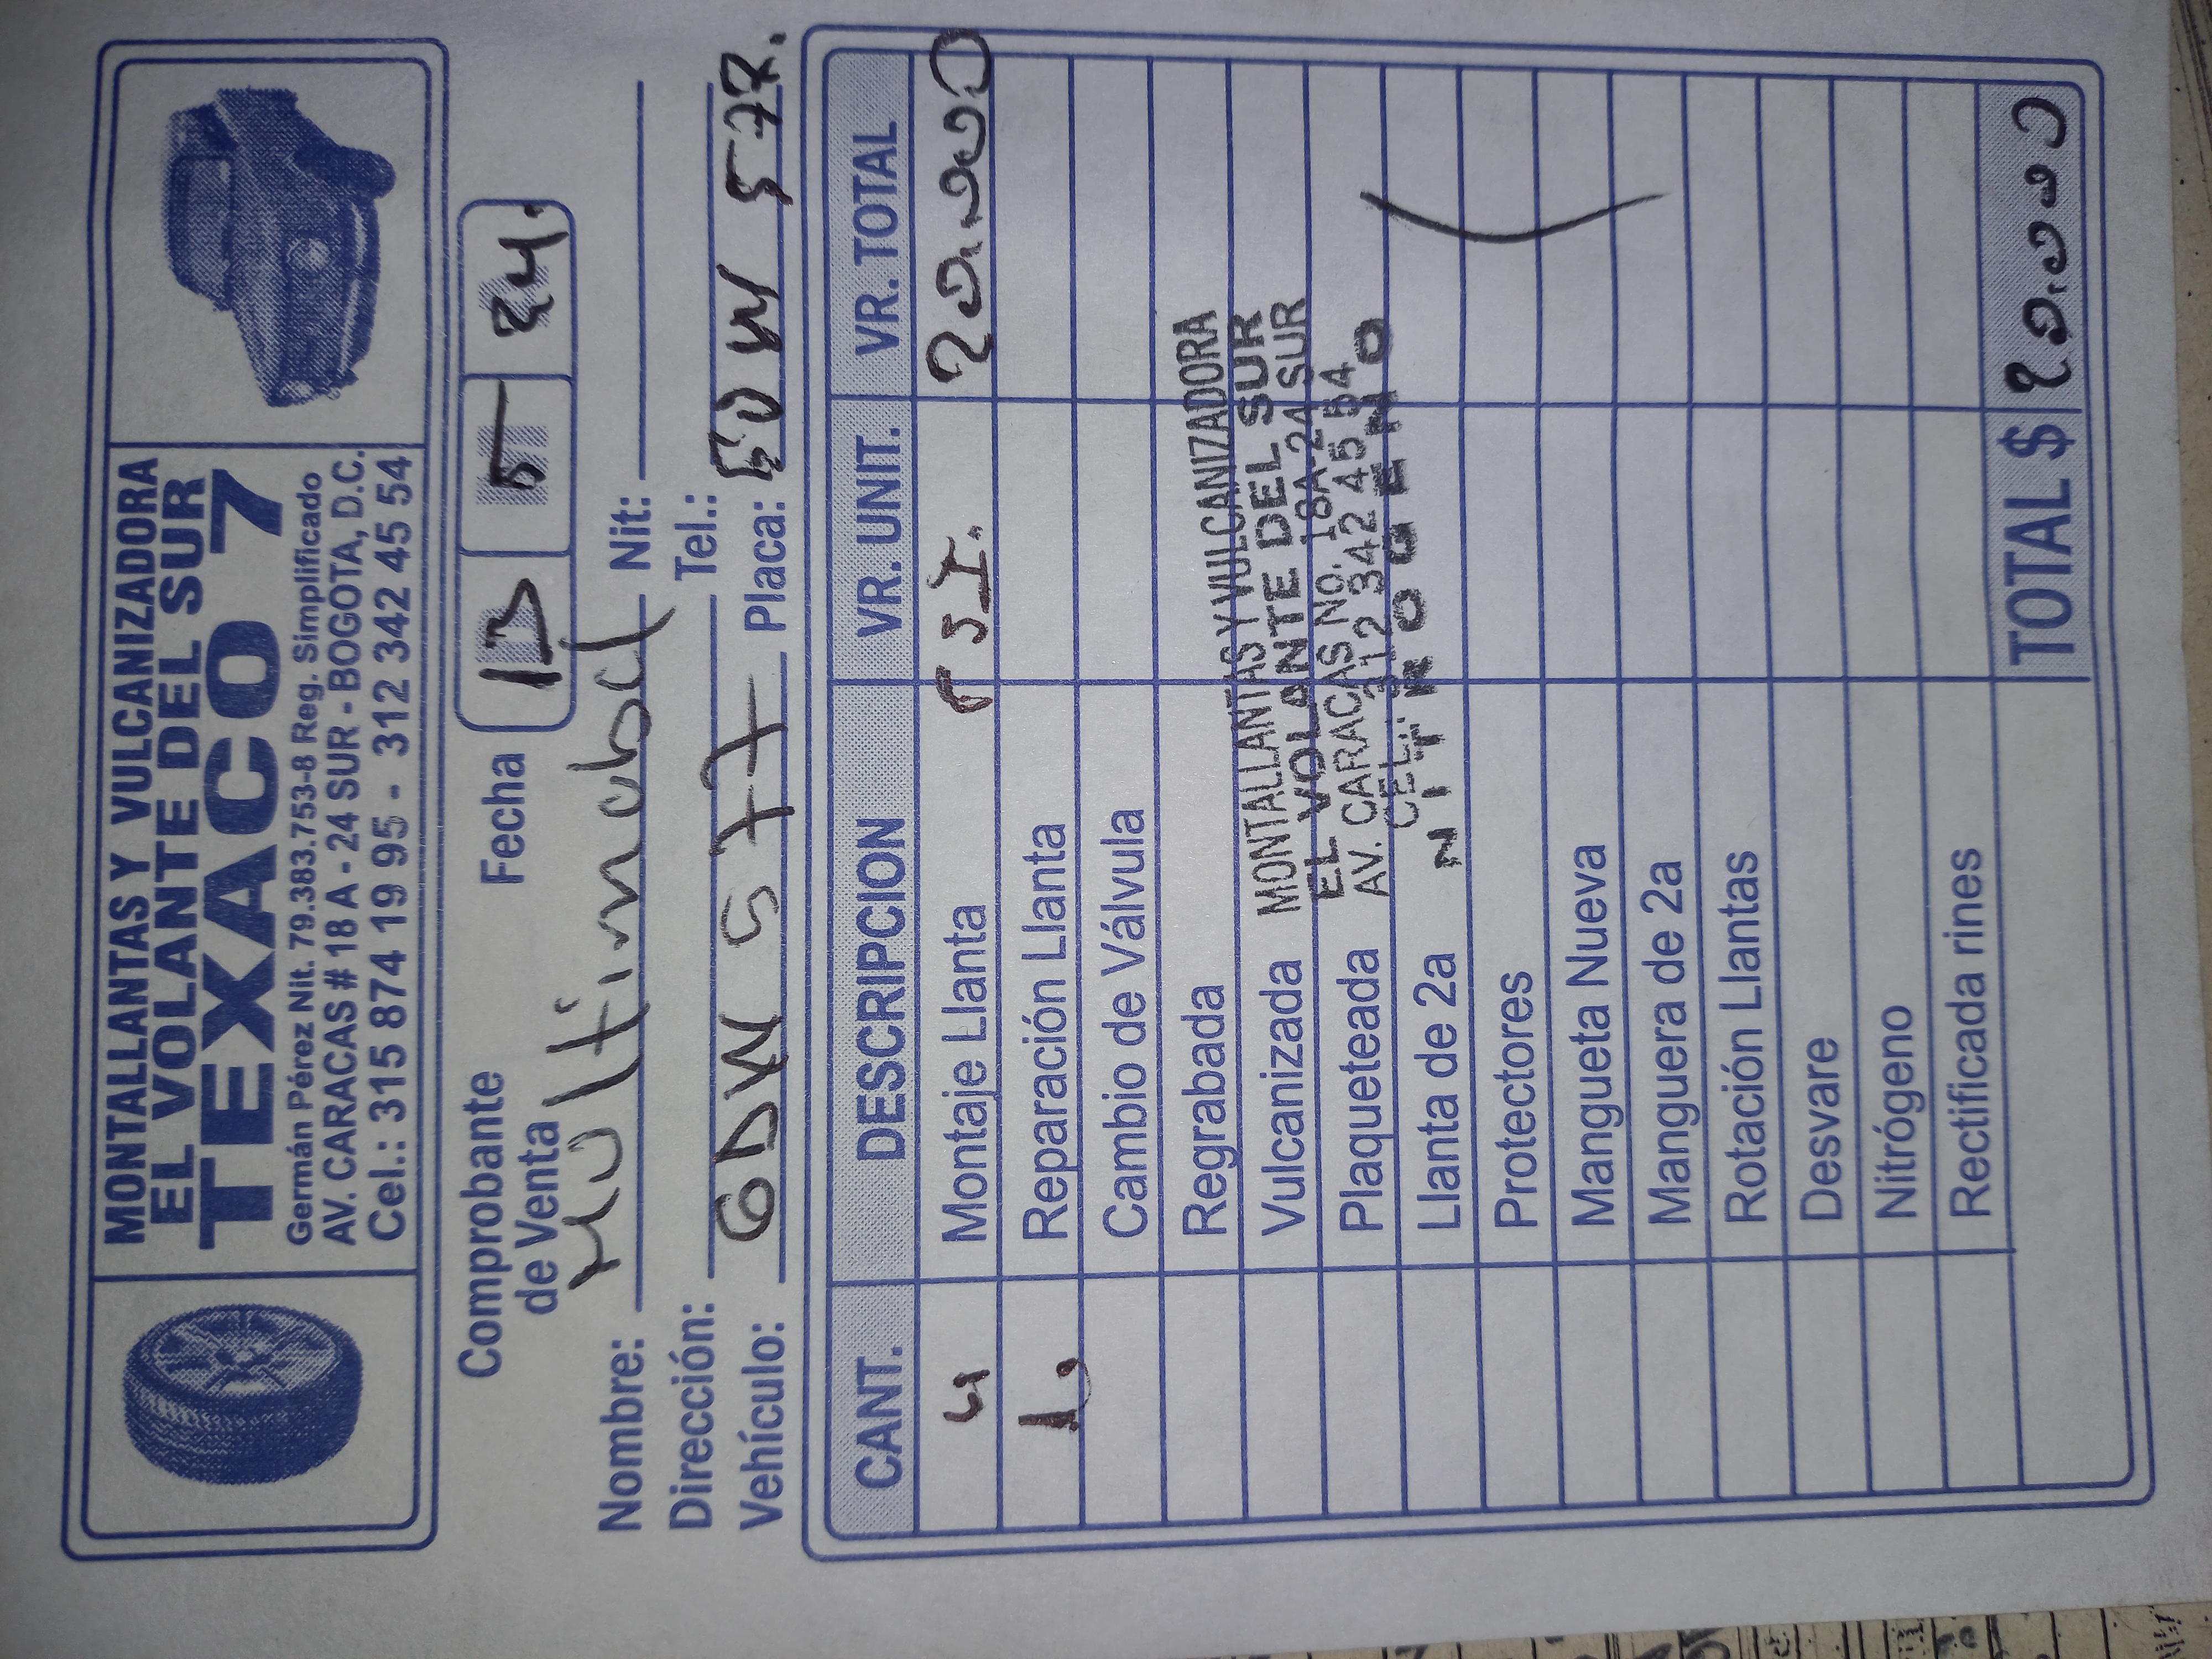 MONTALLANTAS Y VULCANIZADORA
EL VOLANTE DEL SUR
TEXACO 7
Germán Pérez Nit. 79.383.753-8 Reg. Simplificado
AV. CARACAS # 18 A - 24 SUR - BOGOTA, D.C.
Cel.: 315 874 19 95 - 312 342 45 54
Comprobante de Venta
Fecha 13 5 24.
Nombre: Multimabel Nit:
Dirección: Tel.:
Vehículo: Placa: 577.
CANT. DESCRIPCION VR. UNIT. VR. TOTAL
4 Montaje Llanta 20.000
1 Reparación Llanta
Cambio de Válvula
Regrabada
Vulcanizada
Plaqueteada
Llanta de 2a
Protectores
Mangueta Nueva
Manguera de 2a
Rotación Llantas
Desvare
Nitrógeno
Rectificada rines
MONTALLANTAS Y VULCANIZADORA
EL VOLANTE DEL SUR
AV. CARACAS NO. 18A-24 SUR
CEL: 312 342 45 54
NITROGENO
TOTAL $ 20.000